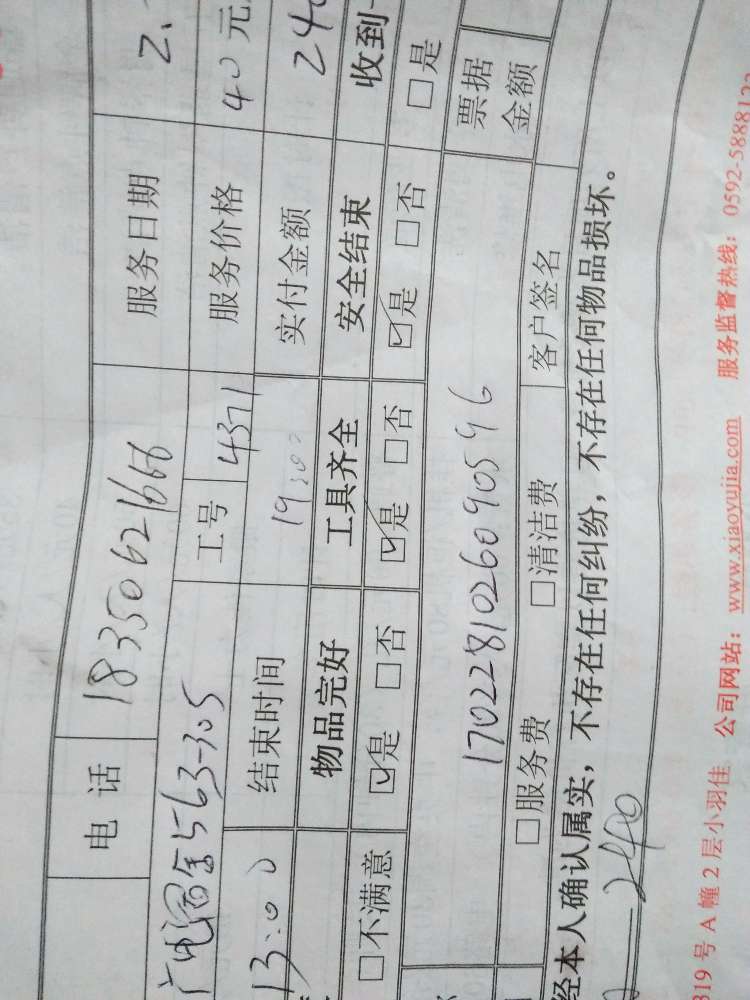 电 话 18350621666 服务日期 2.
563-305 工号 4371 服务价格 40元
13:00 结束时间 19:00 实付金额 240
物品完好 工具齐全 安全结束 收到
□不满意 ☑是 □否 ☑是 □否 ☑是 □否 □是
1702281026090596 票据金额
□服务费 □清洁费 客户签名
经本人确认属实，不存在任何纠纷，不存在任何物品损坏。
240
319 号 A 幢 2 层小羽佳 公司网站：www.xiaoyujia.com 服务监督热线：0592-5888123